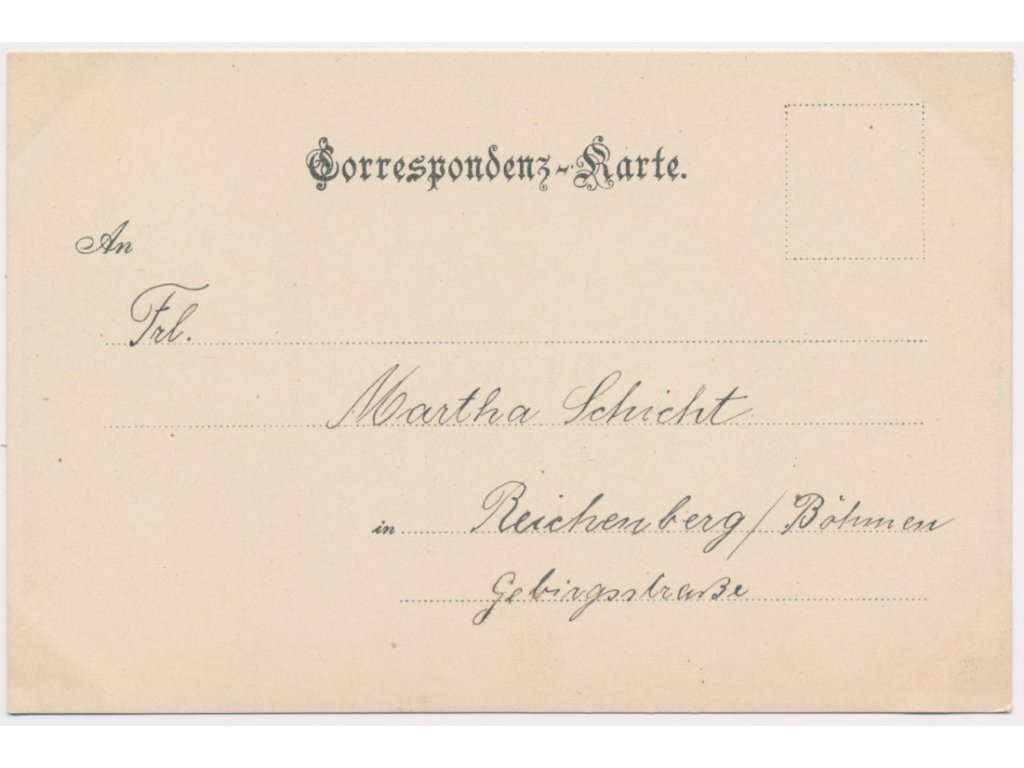 Correspondenz-Karte.
An
Frl.
Martha Schicht
in Reichenberg / Böhmen
Gebirgsstraße